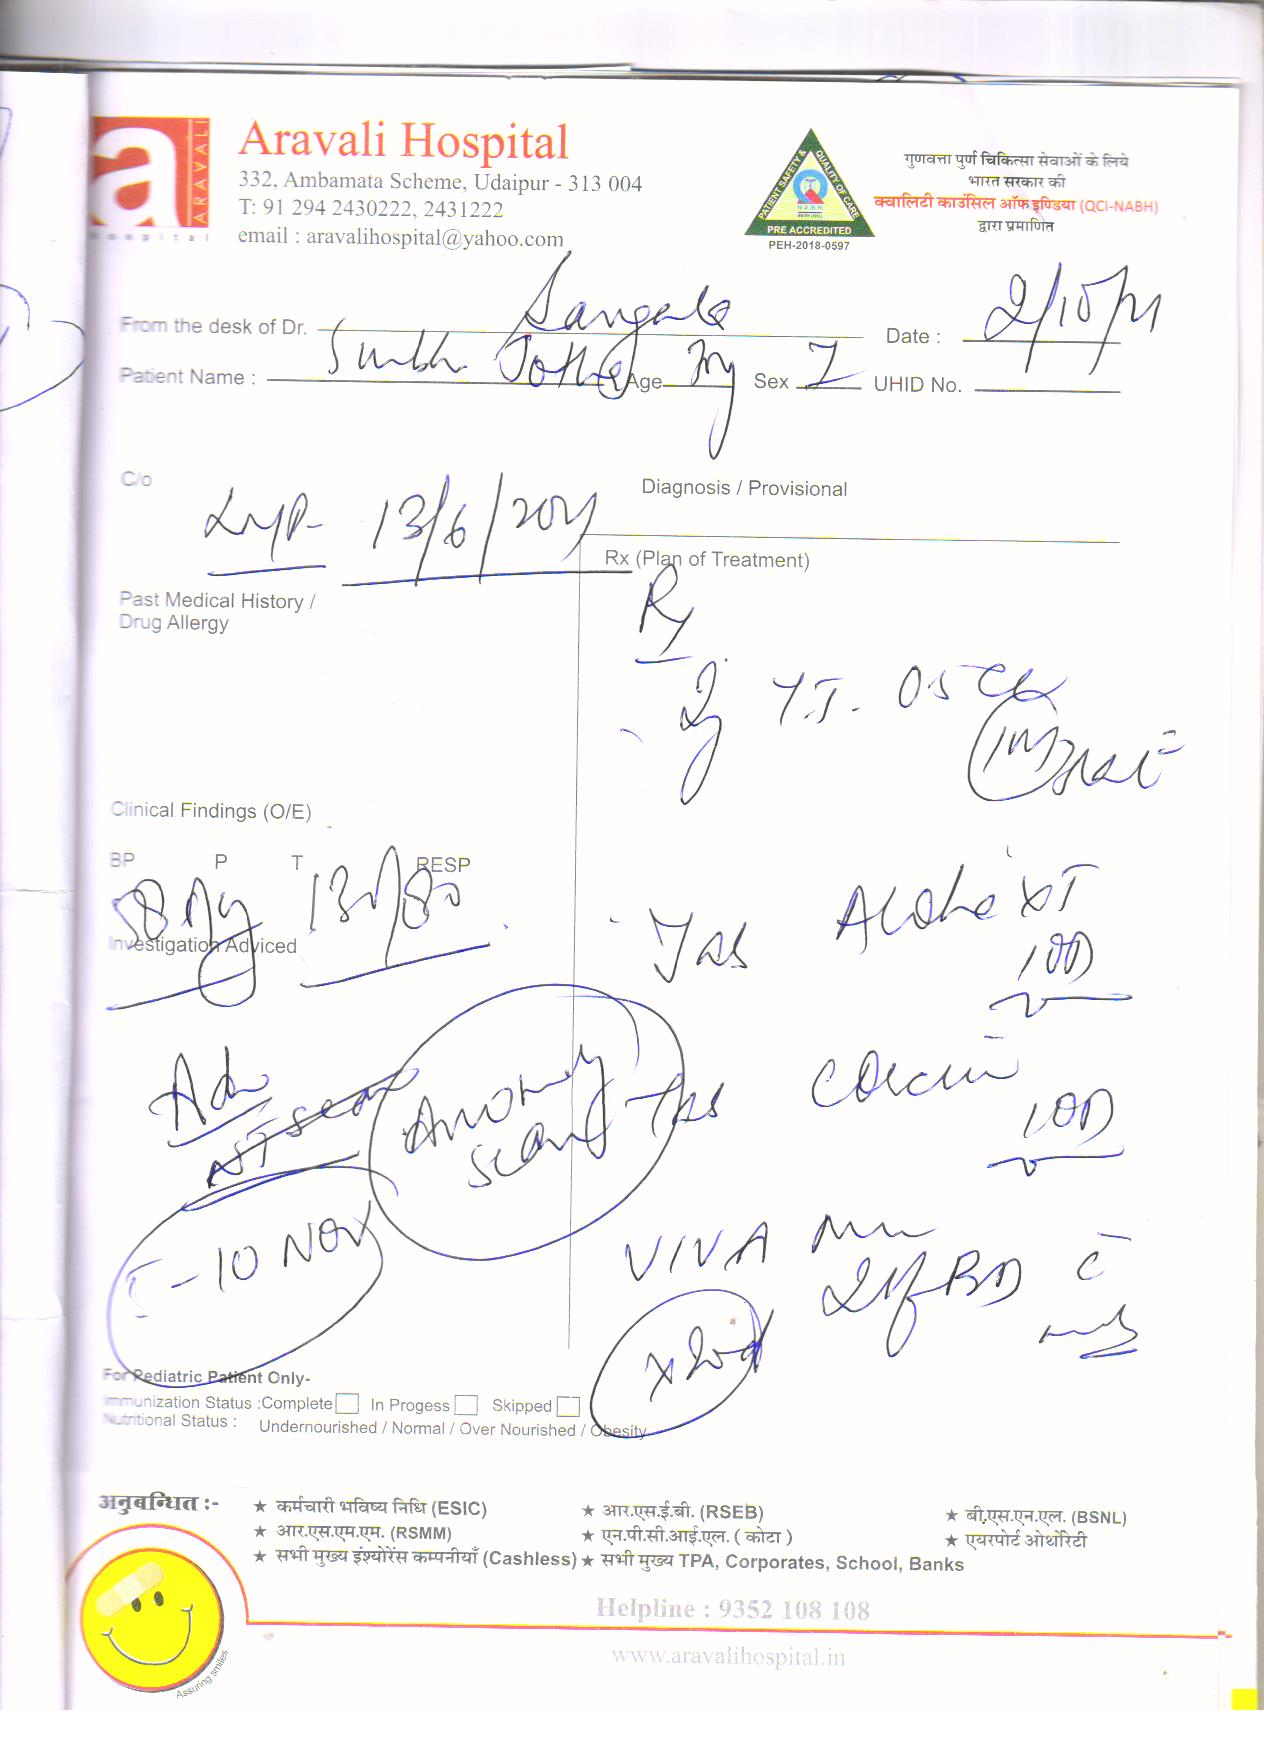 a
ARAVALI
hospital
Aravali Hospital
332, Ambamata Scheme, Udaipur - 313 004
T: 91 294 2430222, 2431222
email : aravalihospital@yahoo.com
PATIENT SAFETY & QUALITY OF CARE
NABH
ENTRY LEVEL
PRE ACCREDITED
PEH-2018-0597
गुणवत्ता पुर्ण चिकित्सा सेवाओं के लिये
भारत सरकार की
क्वालिटी काउंसिल ऑफ इण्डिया (QCI-NABH)
द्वारा प्रमाणित
From the desk of Dr. Date : 2/10/21
Patient Name : Age Sex UHID No.
C/o
LMP 13/6/2021
Diagnosis / Provisional
Rx (Plan of Treatment)
Past Medical History /
Drug Allergy
Rx
T.T. 0.5
IM
Clinical Findings (O/E)
BP P T RESP
58 kg 130/80
Investigation Adviced
Tab XT
1OD
Adv
NT scan
Anomaly
scan
Tab
1OD
1-10 NOV
VIVA
BD
x 20d
For Pediatric Patient Only-
Immunization Status :Complete In Progess Skipped
Nutritional Status : Undernourished / Normal / Over Nourished / Obesity
अनुबन्धित :-
★ कर्मचारी भविष्य निधि (ESIC) ★ आर.एस.ई.बी. (RSEB) ★ बी.एस.एन.एल. (BSNL)
★ आर.एस.एम.एम. (RSMM) ★ एन.पी.सी.आई.एल. ( कोटा ) ★ एयरपोर्ट ओथोरिटी
★ सभी मुख्य इंश्योरेंस कम्पनीयाँ (Cashless) ★ सभी मुख्य TPA, Corporates, School, Banks
Helpline : 9352 108 108
www.aravalihospital.in
Assuring smiles